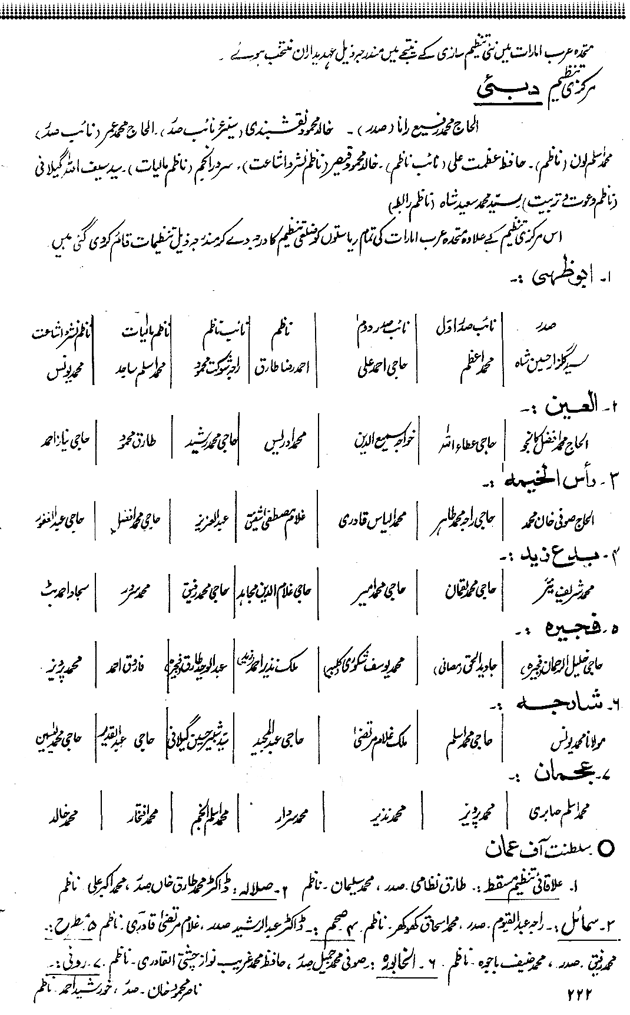 متحدہ عرب امارات میں نئی تنظیم سازی کے نتیجے میں مندرجہ ذیل عہدیداران منتخب ہوئے ۔
مرکزی تنظیم دبئی
الحاج محمد رفیع رانا (صدر) ۔ خالد محمود نقشبندی (سینئر نائب صدر) ۔ الحاج محمد عمر (نائب صدر)
محمد اسلم لون (ناظم) ۔ حافظ عظمت علی (نائب ناظم) ۔ خالد محمود قیصر (ناظم نشر و اشاعت) ، سرور انجم (ناظم مالیات) ۔ سید سیف اللہ گیلانی
(ناظم دعوت و تربیت) سید محمد سعید شاہ (ناظم رابطہ)
اس مرکزی تنظیم کے علاوہ متحدہ عرب امارات کی تمام ریاستوں کو ضلعی تنظیم کا درجہ دے کر مندرجہ ذیل تنظیمات قائم کر دی گئی ہیں
۱۔ ابوظہبی :۔
صدر | نائب صدر اوّل | نائب صدر دوم | ناظم | نائب ناظم | ناظم مالیات | ناظم نشر و اشاعت
سید گلزار حسین شاہ | محمد اعظم | حاجی احمد علی | احمد رضا طارق | راجہ شوکت محمود | محمد اسلم ساجد | محمد یونس
۲۔ العین :۔
الحاج محمد افضل کانجو | حاجی عطاء اللہ | خواجہ سمیع الدین | محمد ادریس | حاجی محمد رشید | طارق محمود | حاجی نیاز احمد
۳۔ رأس الخیمہ :۔
الحاج صوفی خان محمد | حاجی راجہ محمد طاہر | محمد الیاس قادری | غلام مصطفیٰ | عبدالعزیز | حاجی محمد افضل | حاجی عبدالغفور
۴۔ بدع زید :۔
محمد شریف | حاجی محمد لقمان | حاجی محمد امیر | حاجی غلام الدین مجاہد | حاجی محمد رفیق | محمد سرور | سجاد احمد بٹ
۵۔ فجیرہ :۔
حاجی خلیل الرحمان (فجیرہ) | جاوید الحق | محمد یوسف | ملک نذیر احمد | عبدالوحید طارق | فاروق احمد | محمد پرویز
۶۔ شارجہ :۔
مولانا محمد یونس | حاجی محمد اسلم | ملک غلام مرتضیٰ | حاجی عبدالمجید | سید شبیر حسین گیلانی | حاجی عبدالقدیم | حاجی محمد یٰسین
۷۔ عجمان :۔
محمد اسلم صابری | محمد پرویز | محمد نذیر | محمد سردار | محمد اسلم انجم | محمد افتخار | محمد خالد
○ سلطنت آف عمان
۱۔ علاقائی تنظیم مسقط :۔ طارق نظامی ۔ صدر ، محمد سلیمان ۔ ناظم ۲۔ صلالہ : ڈاکٹر محمد طارق خاں صدر ، محمد اکبر علی ناظم
۳۔ سمائل :۔ راجہ عبدالقیوم ۔ صدر ، محمد اسحاق کھوکھر ۔ ناظم ۴۔ صحم :۔ ڈاکٹر عبدالرشید صدر ، غلام مرتضیٰ قادری ۔ ناظم ۵۔ مطرح :۔
محمد رفیق ۔ صدر ، محمد حنیف باجوہ ۔ ناظم ۔ ۶۔ الخابورہ : صوفی محمد جمیل صدر ، حافظ محمد غریب نواز چشتی القادری ۔ ناظم ۔ ۷۔ روئی :۔
ناصر محمود خان ۔ صدر ، خورشید احمد ۔ ناظم
۲۲۲